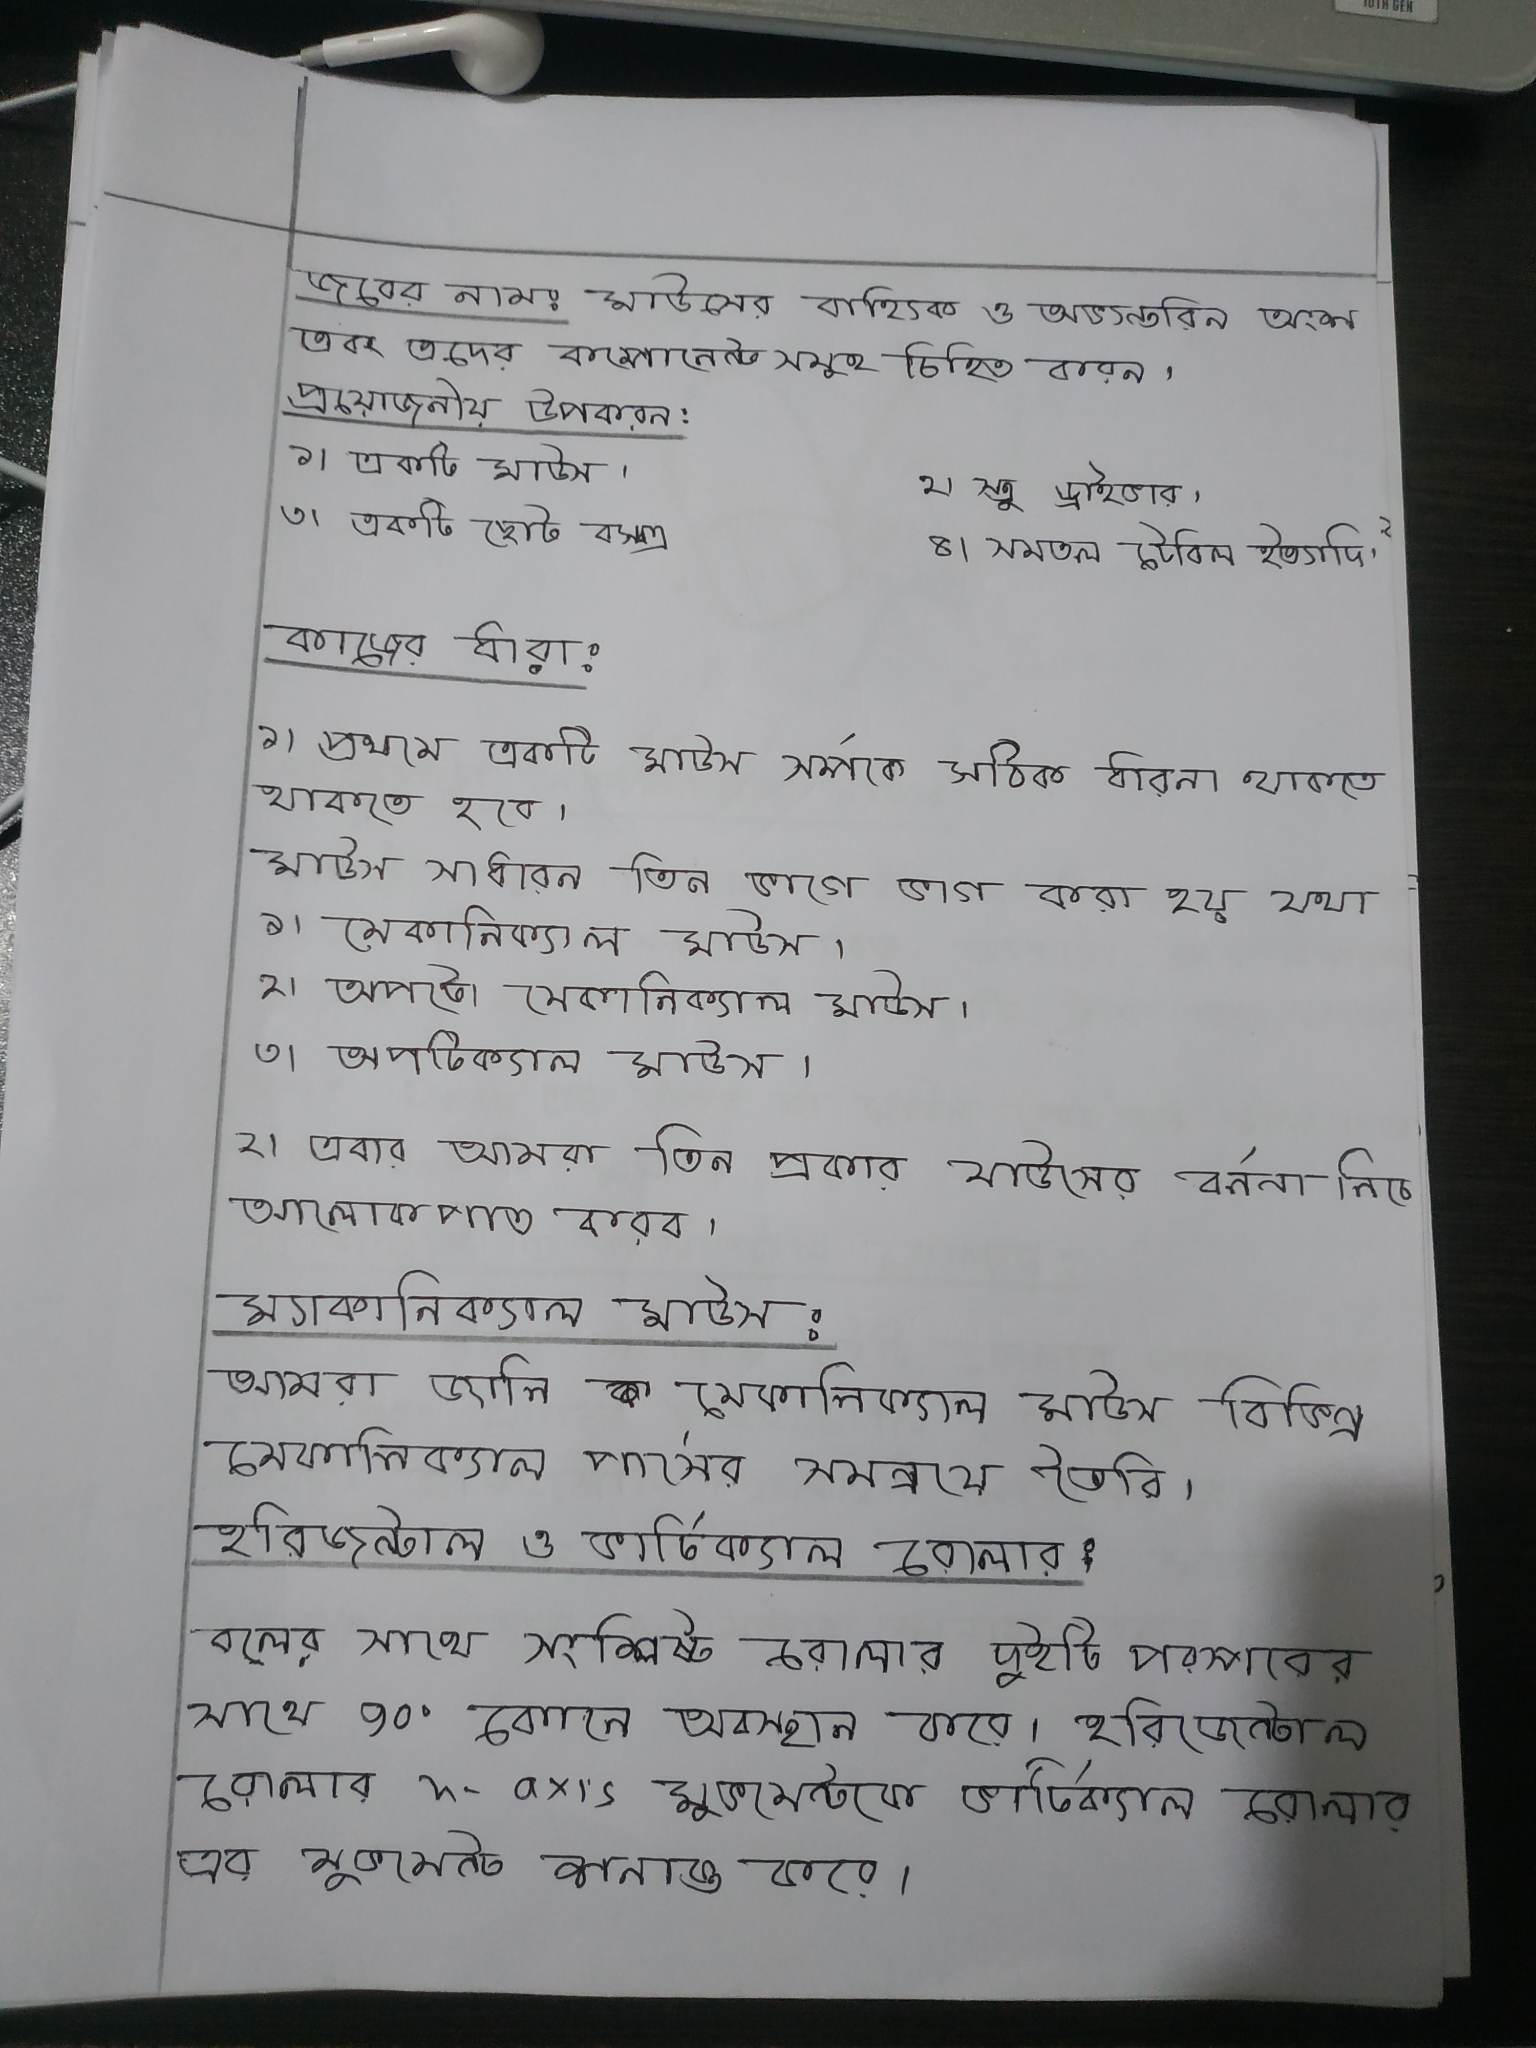 10TH GEN
জবের নামঃ মাউসের বাহ্যিক ও অভ্যন্তরিন অংশ
এবং এদের কম্পোনেন্ট সমূহ চিহ্নিত করন।
প্রয়োজনীয় উপকরন:
১। একটি মাউস।
২। স্ক্রু ড্রাইভার।
৩। একটি ছোট বস্ত্র
৪। সমতল টেবিল ইত্যাদি।
কাজের ধারা:
১। প্রথমে একটি মাউস সর্ম্পকে সঠিক ধারনা থাকতে
থাকতে হবে।
মাউস সাধারন তিন ভাগে ভাগ করা হয় যথা
১। মেকানিক্যাল মাউস।
২। অপটো মেকানিক্যাল মাউস।
৩। অপটিক্যাল মাউস।
২। এবার আমরা তিন প্রকার মাউসের বর্ননা নিচে
আলোকপাত করব।
ম্যাকানিক্যাল মাউস:
আমরা জানি মেকানিক্যাল মাউস বিভিন্ন
মেকানিক্যাল পার্সের সমন্বয়ে তৈরি।
হরিজন্টাল ও ভার্টিক্যাল রোলার:
বলের সাথে সংশ্লিষ্ট রোলার দুইটি পরস্পরের
সাথে ৯০° কোনে অবস্থান করে। হরিজেন্টাল
রোলার x- axis মুভমেন্টকে ভার্টিক্যাল রোলার
এর মুভমেন্ট শনাক্ত করে।